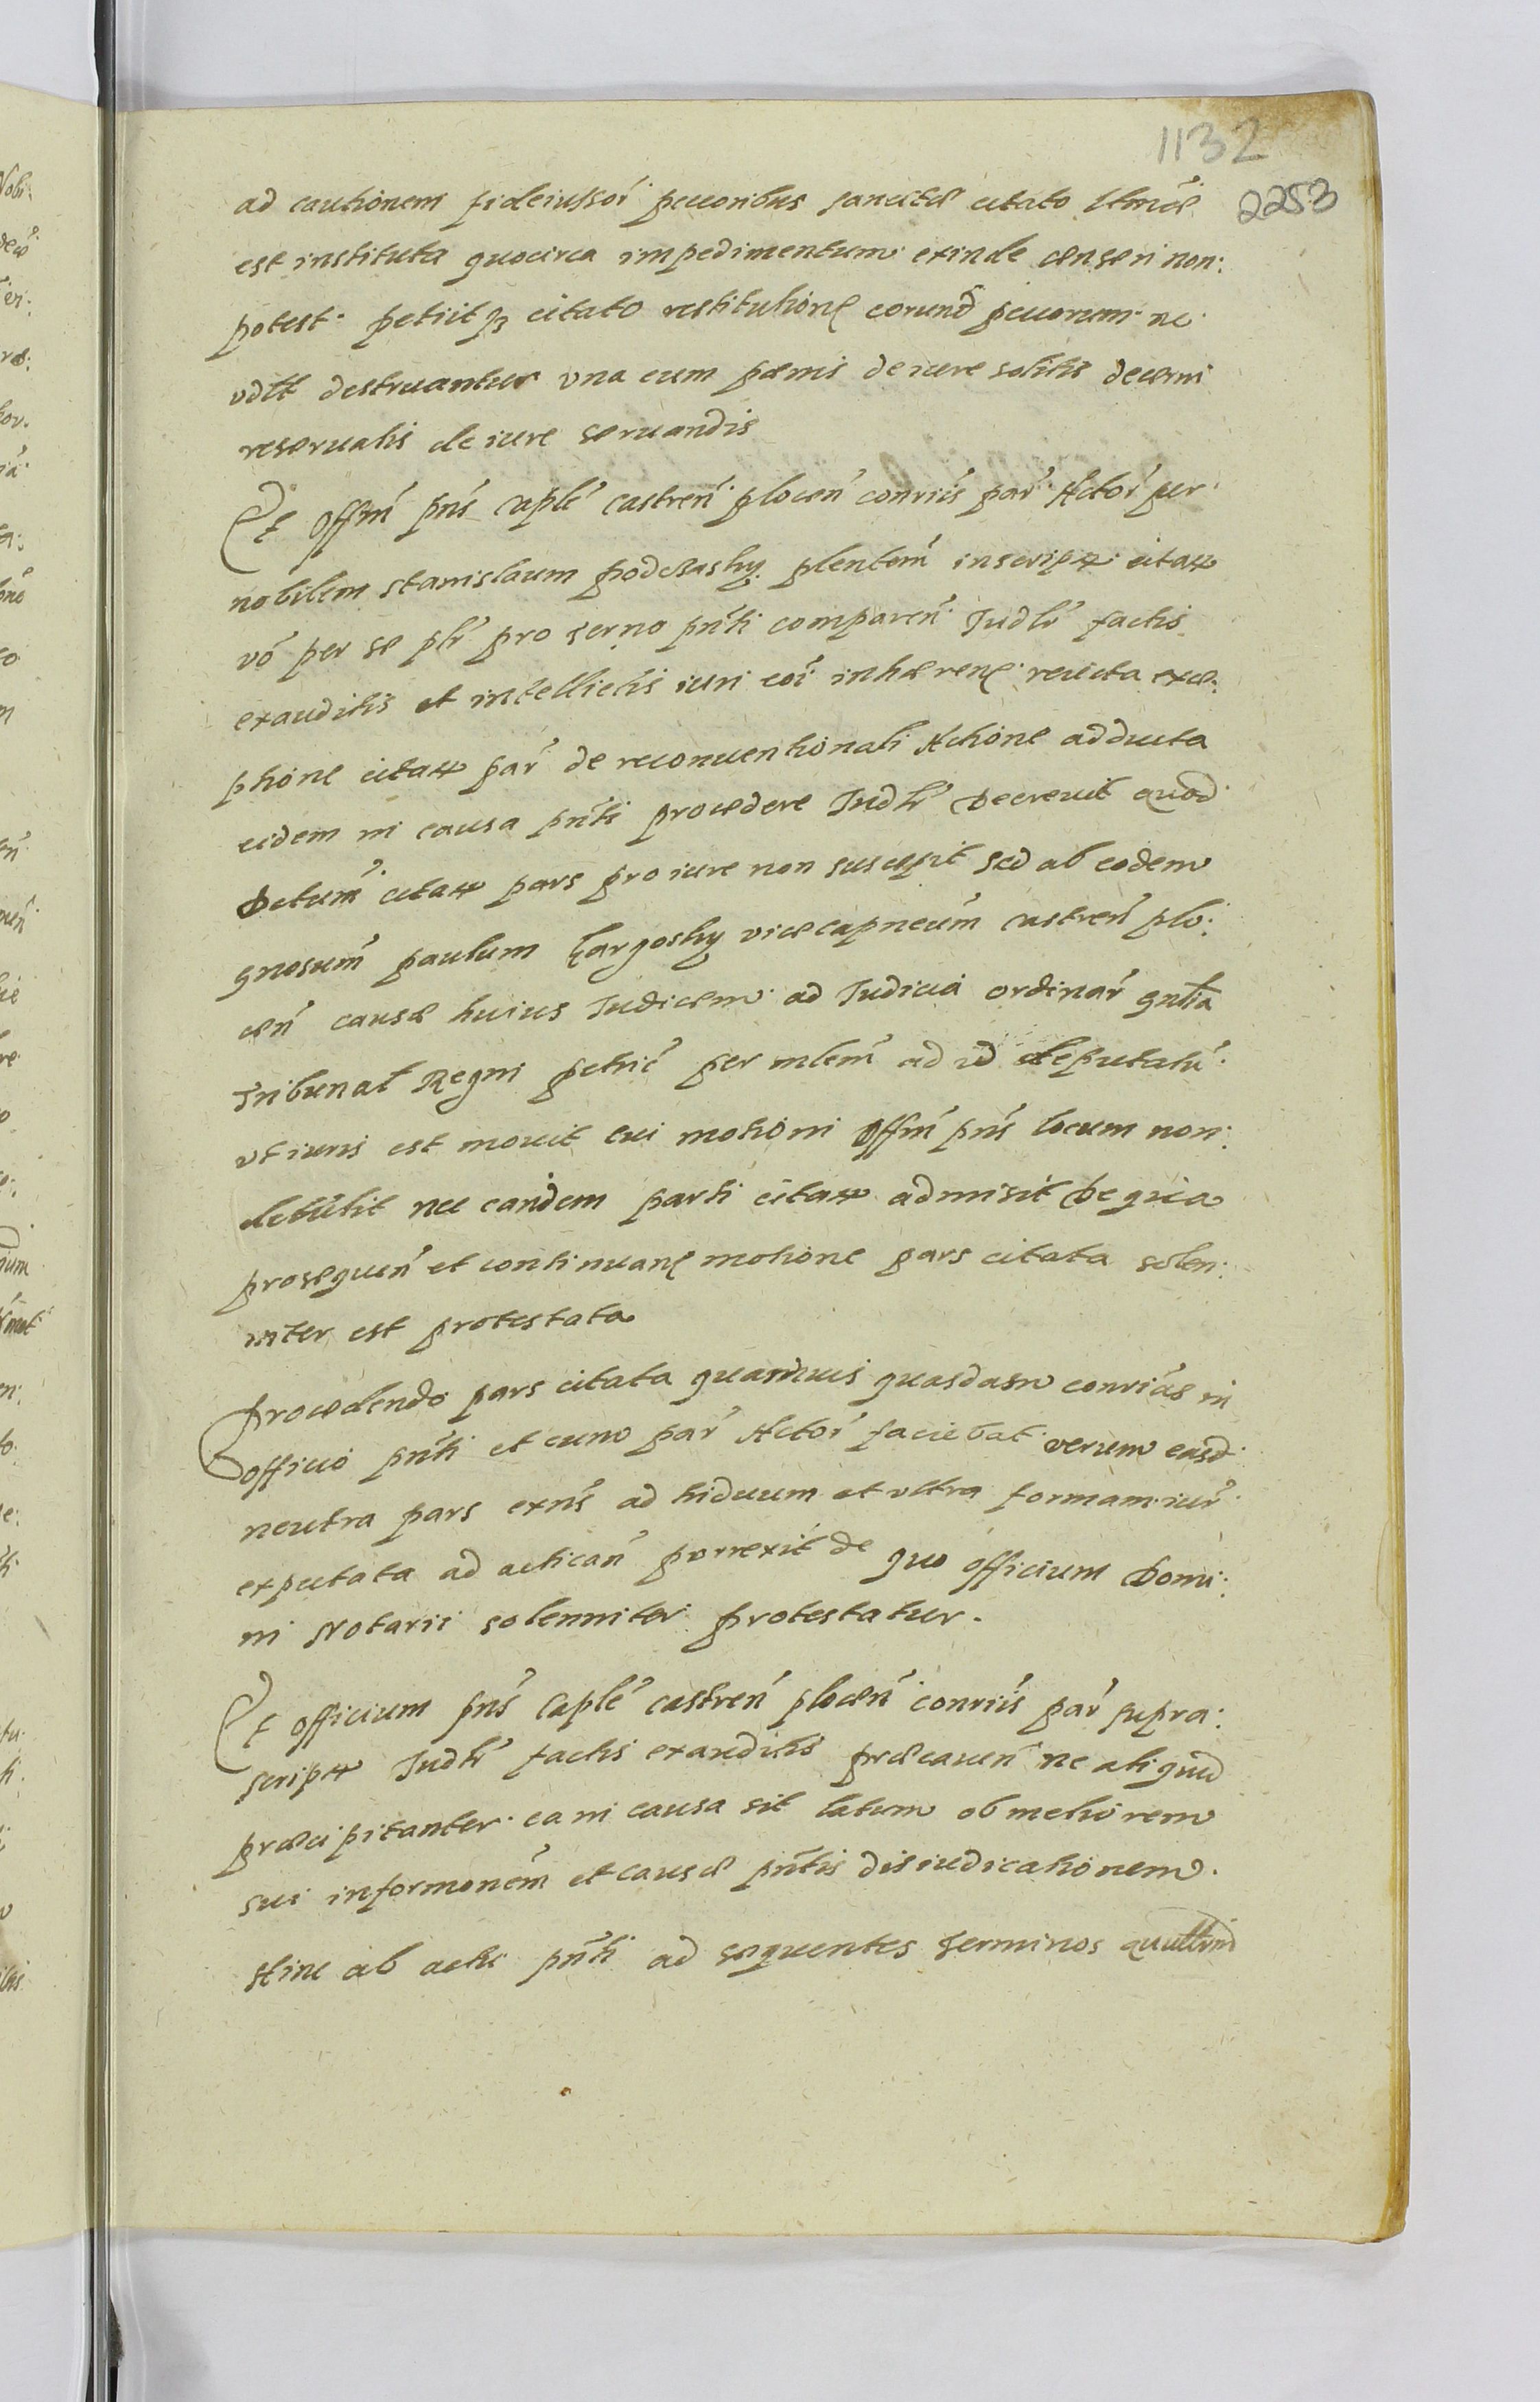 1132
2253
ad cautionem fideiussor pecoribus sancitæ citato
est instituta quocirca impedimentum exinde censeri non:
potest petiitqȝ citato restitutione eorund pecorum ne
destruantur una cum pœnis de iure solitis decerni
reservatis de iure servandis
Et Offm pns Caple castren plocen convus par Actor per
nobilem Stanislaum Podczasky plentem inscript citat
vo per se plr pro terno pnti comparen Judlr factis
exauditis et intellectis iuri coi inhæren reiecta exce:
ptione citat par de reconventionali Actione adducta
eidem in causa pnti procedere Judlr decrevit quod
Detum citat pars pro iure non suscepit sed ab eodem
gnosum Paulum Gargosky vicecapneum castren plo:
cen causæ huius Judicem ad Judicia ordinar gnlia
Tribunal Regni petric per mlem ad id deputatu
ut iuris est movit cui motioni Offm pns locum non:
detulit nec eandem parti citat admisit De qua
prosequen et continuan motione pars citata solen:
niter est protestata
Procedendo pars citata quamvis quasdam convias in
officio pnti et cum par Actor faciebat verum easd
neutra pars exns ad triduum et ultra formam iur
expectata ad actican porrexit de quo officium Domi:
ni Notarii solenniter protestatur.
Et officium pns Caple castren plocen convus par supra:
script Judlr factis exauditis præcaven ne aliquid
præcipitanter ea in causa sit latum ob meliorem
sui informonem et causæ pntis disiudicationem
Hinc ab actu pnti ad sequentes terminos